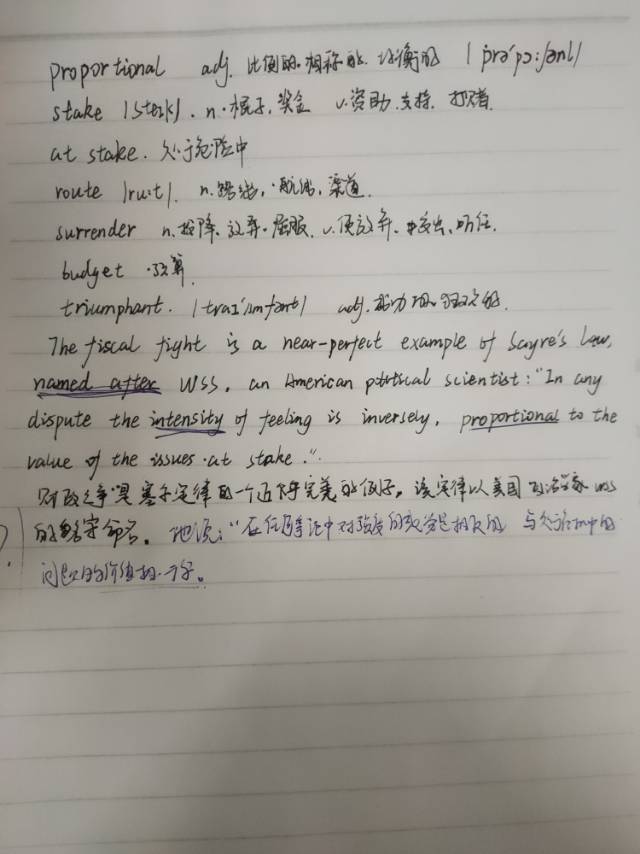 proportional adj. 比例的.相称的.均衡的 |prə'pɔ:ʃənl|
stake |steɪk|. n.棍子,奖金 v.资助.支持. 打赌.
at stake. 处于危险中
route |ru:t|. n.路线,.航线,渠道.
surrender n.投降.放弃.屈服. v.使放弃.交出.听任.
budget .预算.
triumphant. |traɪ'ʌmfənt| adj.成功的.狂欢的.
The fiscal fight is a near-perfect example of Sayre's Law,
named after WSS, an American political scientist: "In any
dispute the intensity of feeling is inversely, proportional to the
value of the issues.at stake."
财政之争是塞尔定律的一个近乎完美的例子。该定律以美国政治学家 WSS
的名字命名。他说:"在任何争论中对强度的感觉是相反的 与处于危险中的
问题的价值相一